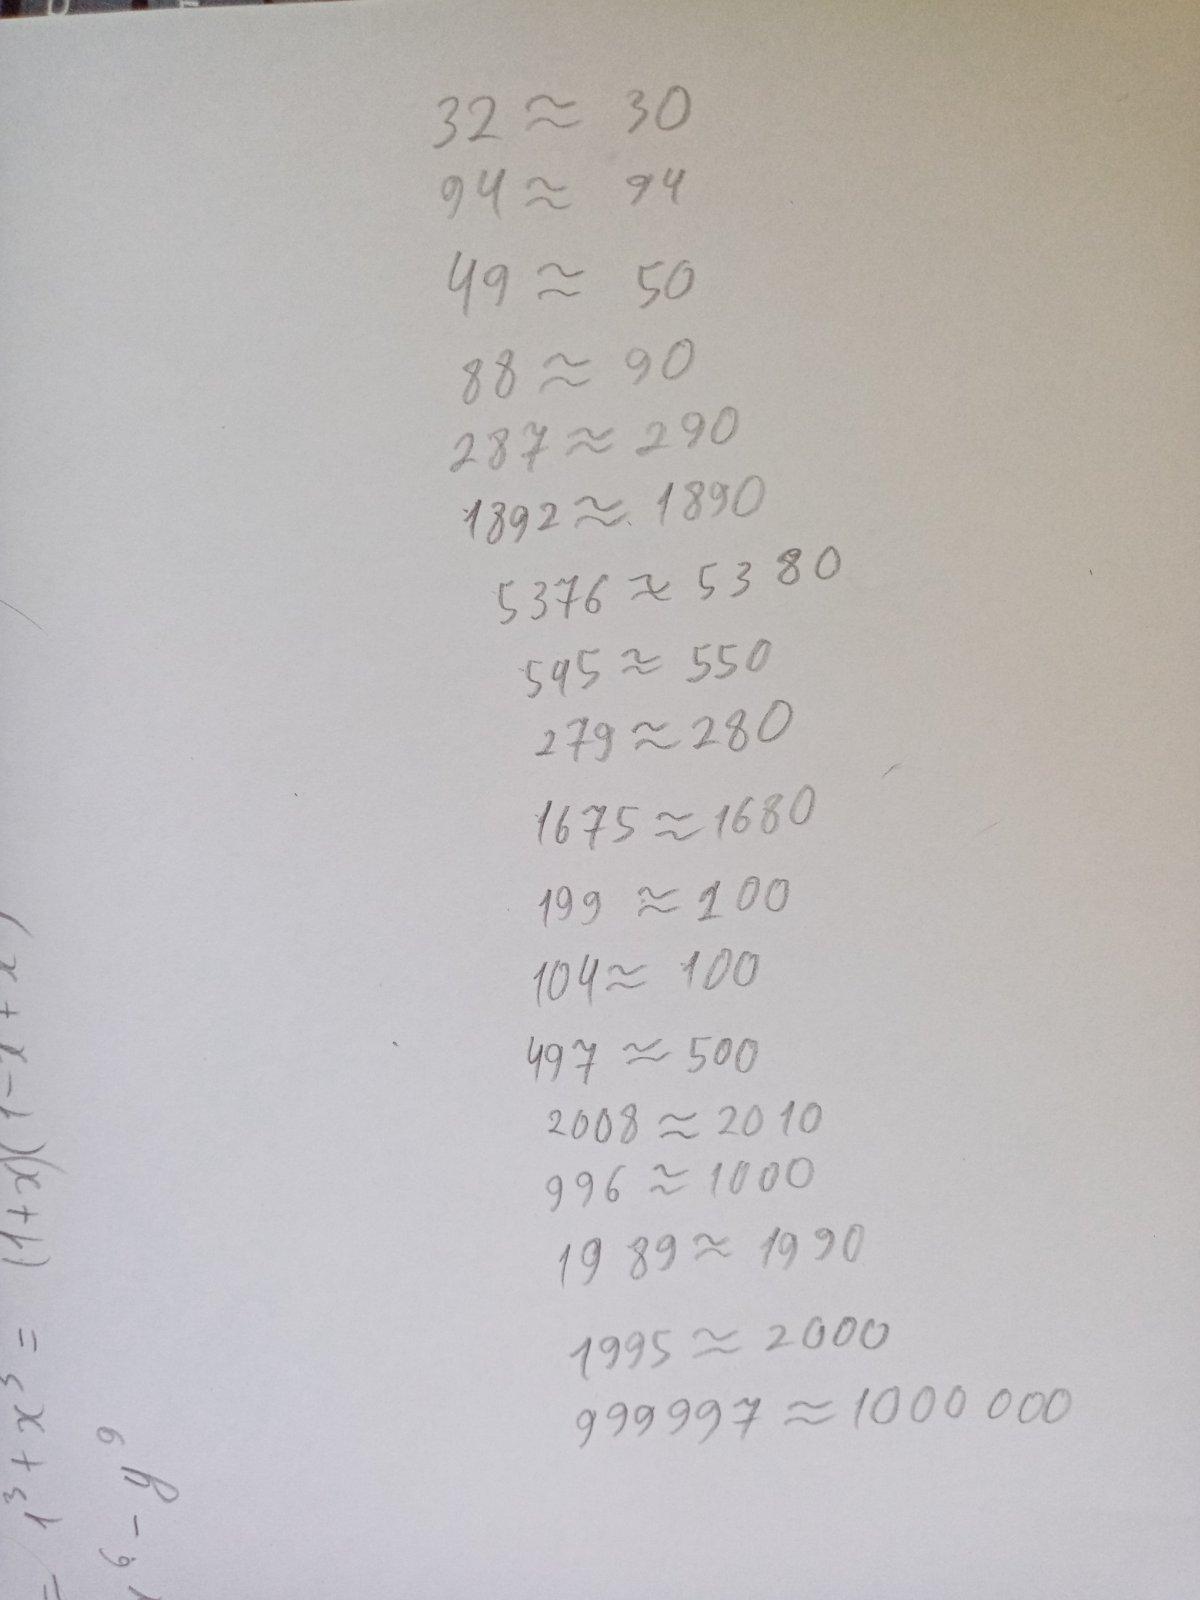 32 ≈ 30
94 ≈ 94
49 ≈ 50
88 ≈ 90
287 ≈ 290
1892 ≈ 1890
5376 ≈ 5380
545 ≈ 550
279 ≈ 280
1675 ≈ 1680
199 ≈ 200
104 ≈ 100
497 ≈ 500
2008 ≈ 2010
996 ≈ 1000
1989 ≈ 1990
1995 ≈ 2000
999997 ≈ 1000 000
= 1³ + x³ = (1+x)(1-x+x)
x⁶ - y⁹